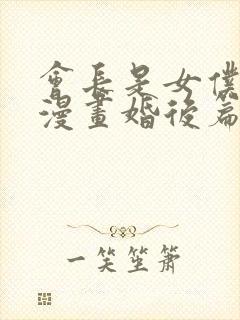 會長是女僕
漫畫婚後篇
一笑笙簫